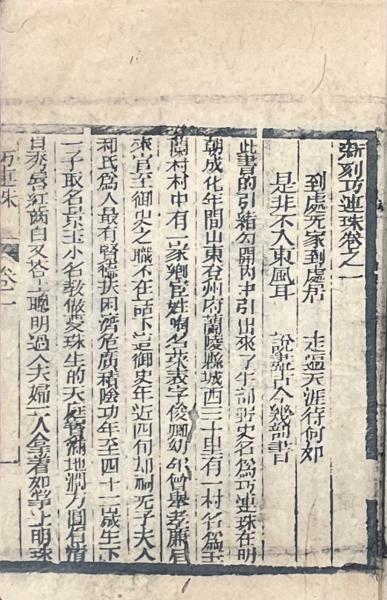 新刻巧連珠卷之一
到處无家到處居　走遍天涯待何如
是非不入東風耳　說盡古今幾部書
此書的引緒勾開內中引出來了部野史名爲巧連珠在明
朝成化年間山東兗州府蘭陵縣城西三十里有一村名爲玉
蘭村村中有一家鄉宦姓名張表字俊卿幼年曾舉孝廉后
來官至御史之職不在話下這御史年近四旬却无子夫人
和氏爲人最有賢德扶困濟危廣積陰功年至四十二歲生下
一子取名景玉小名教做愛珠生的天庭滿地濶方圓眉清
目秀唇紅齒白又答上聰明過人夫婦二人拿着如掌上明珠
巧連珠　卷一　一